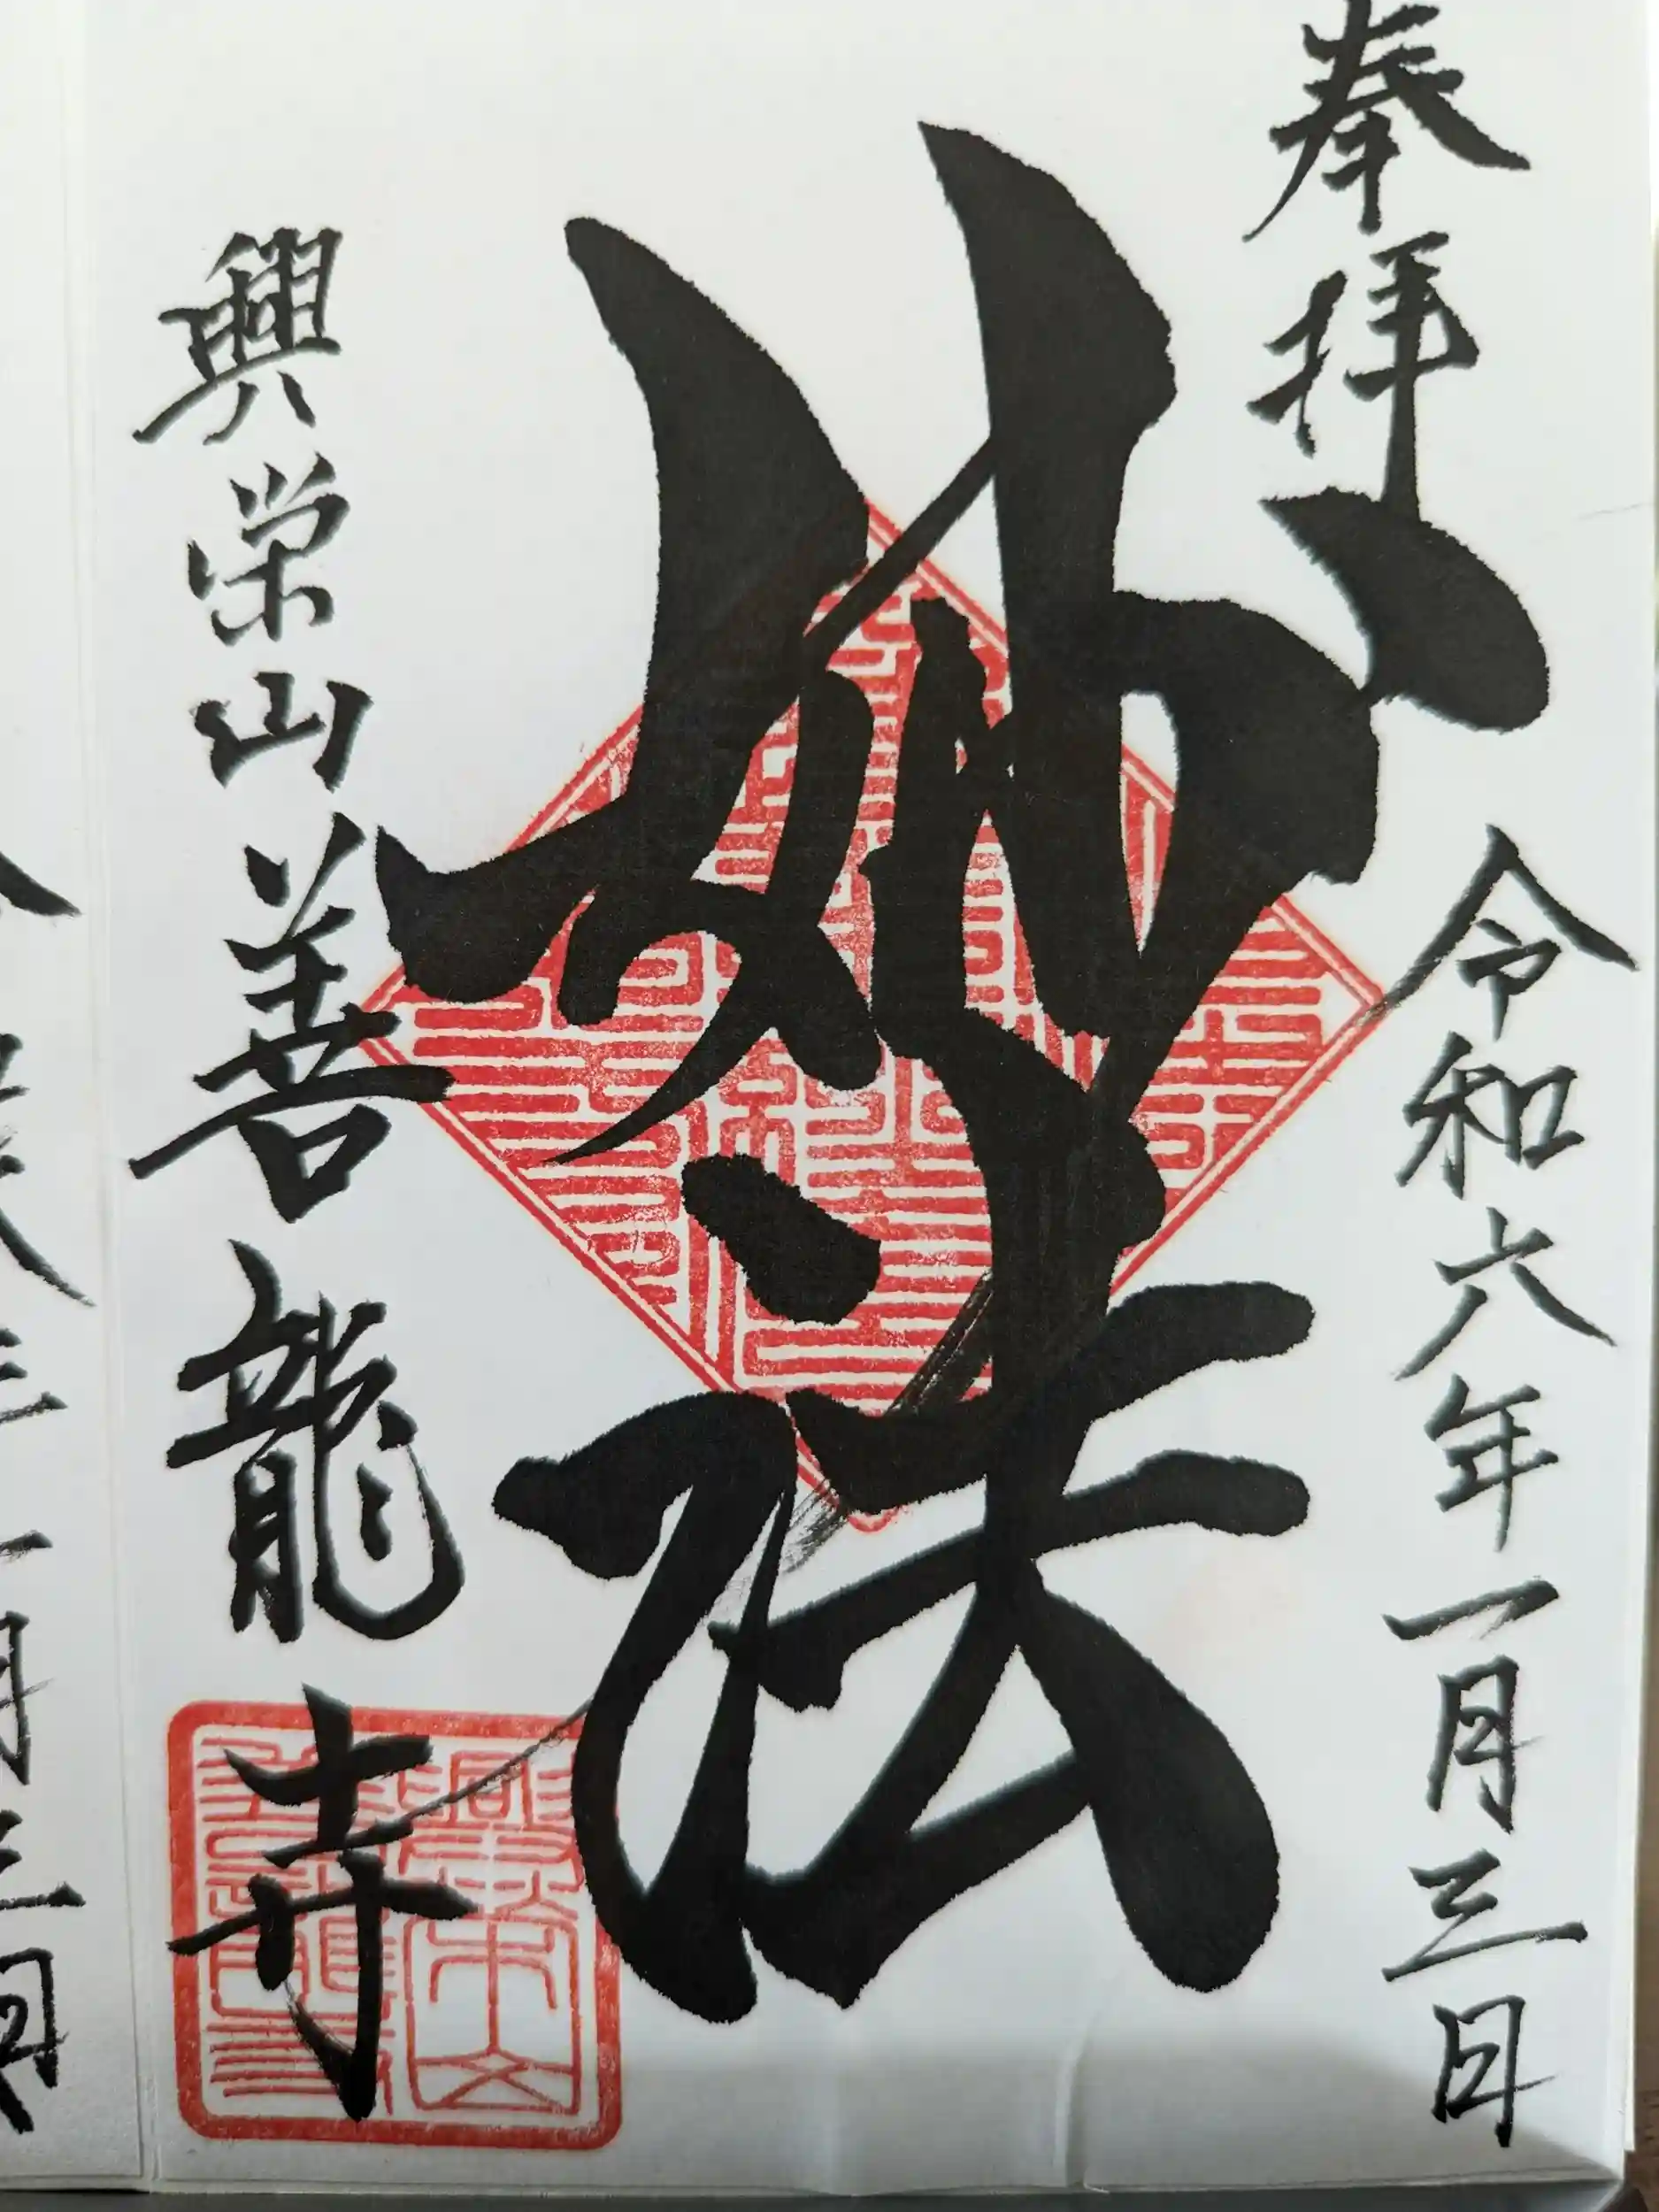 奉拝
令和六年一月三日
妙法
興栄山
善龍寺